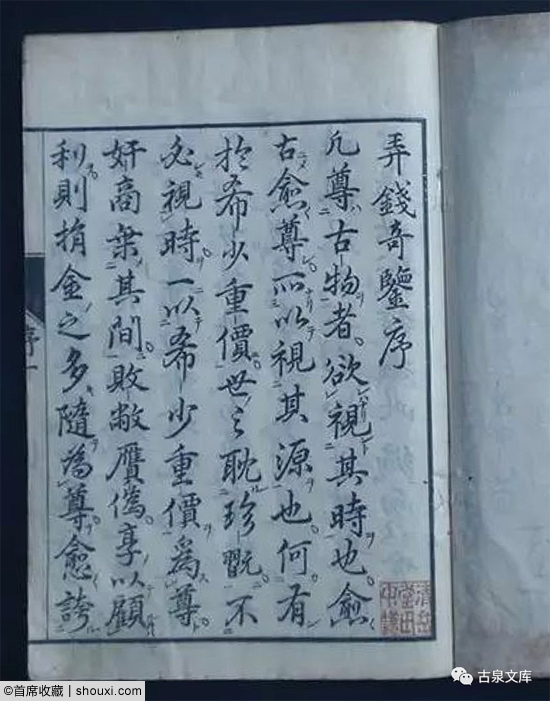 弄錢奇鑒序
凡尊古物者欲視其時也愈
古愈尊所以視其源也何有
於希少重價世之耽珍翫不
必視時一以希少重價爲尊
奸商其間敗敝贋偽享以顧
利則捐金之多隨為尊愈誇
序一
清岳堂田中藏
古泉文库
©首席收藏 | shouxi.com